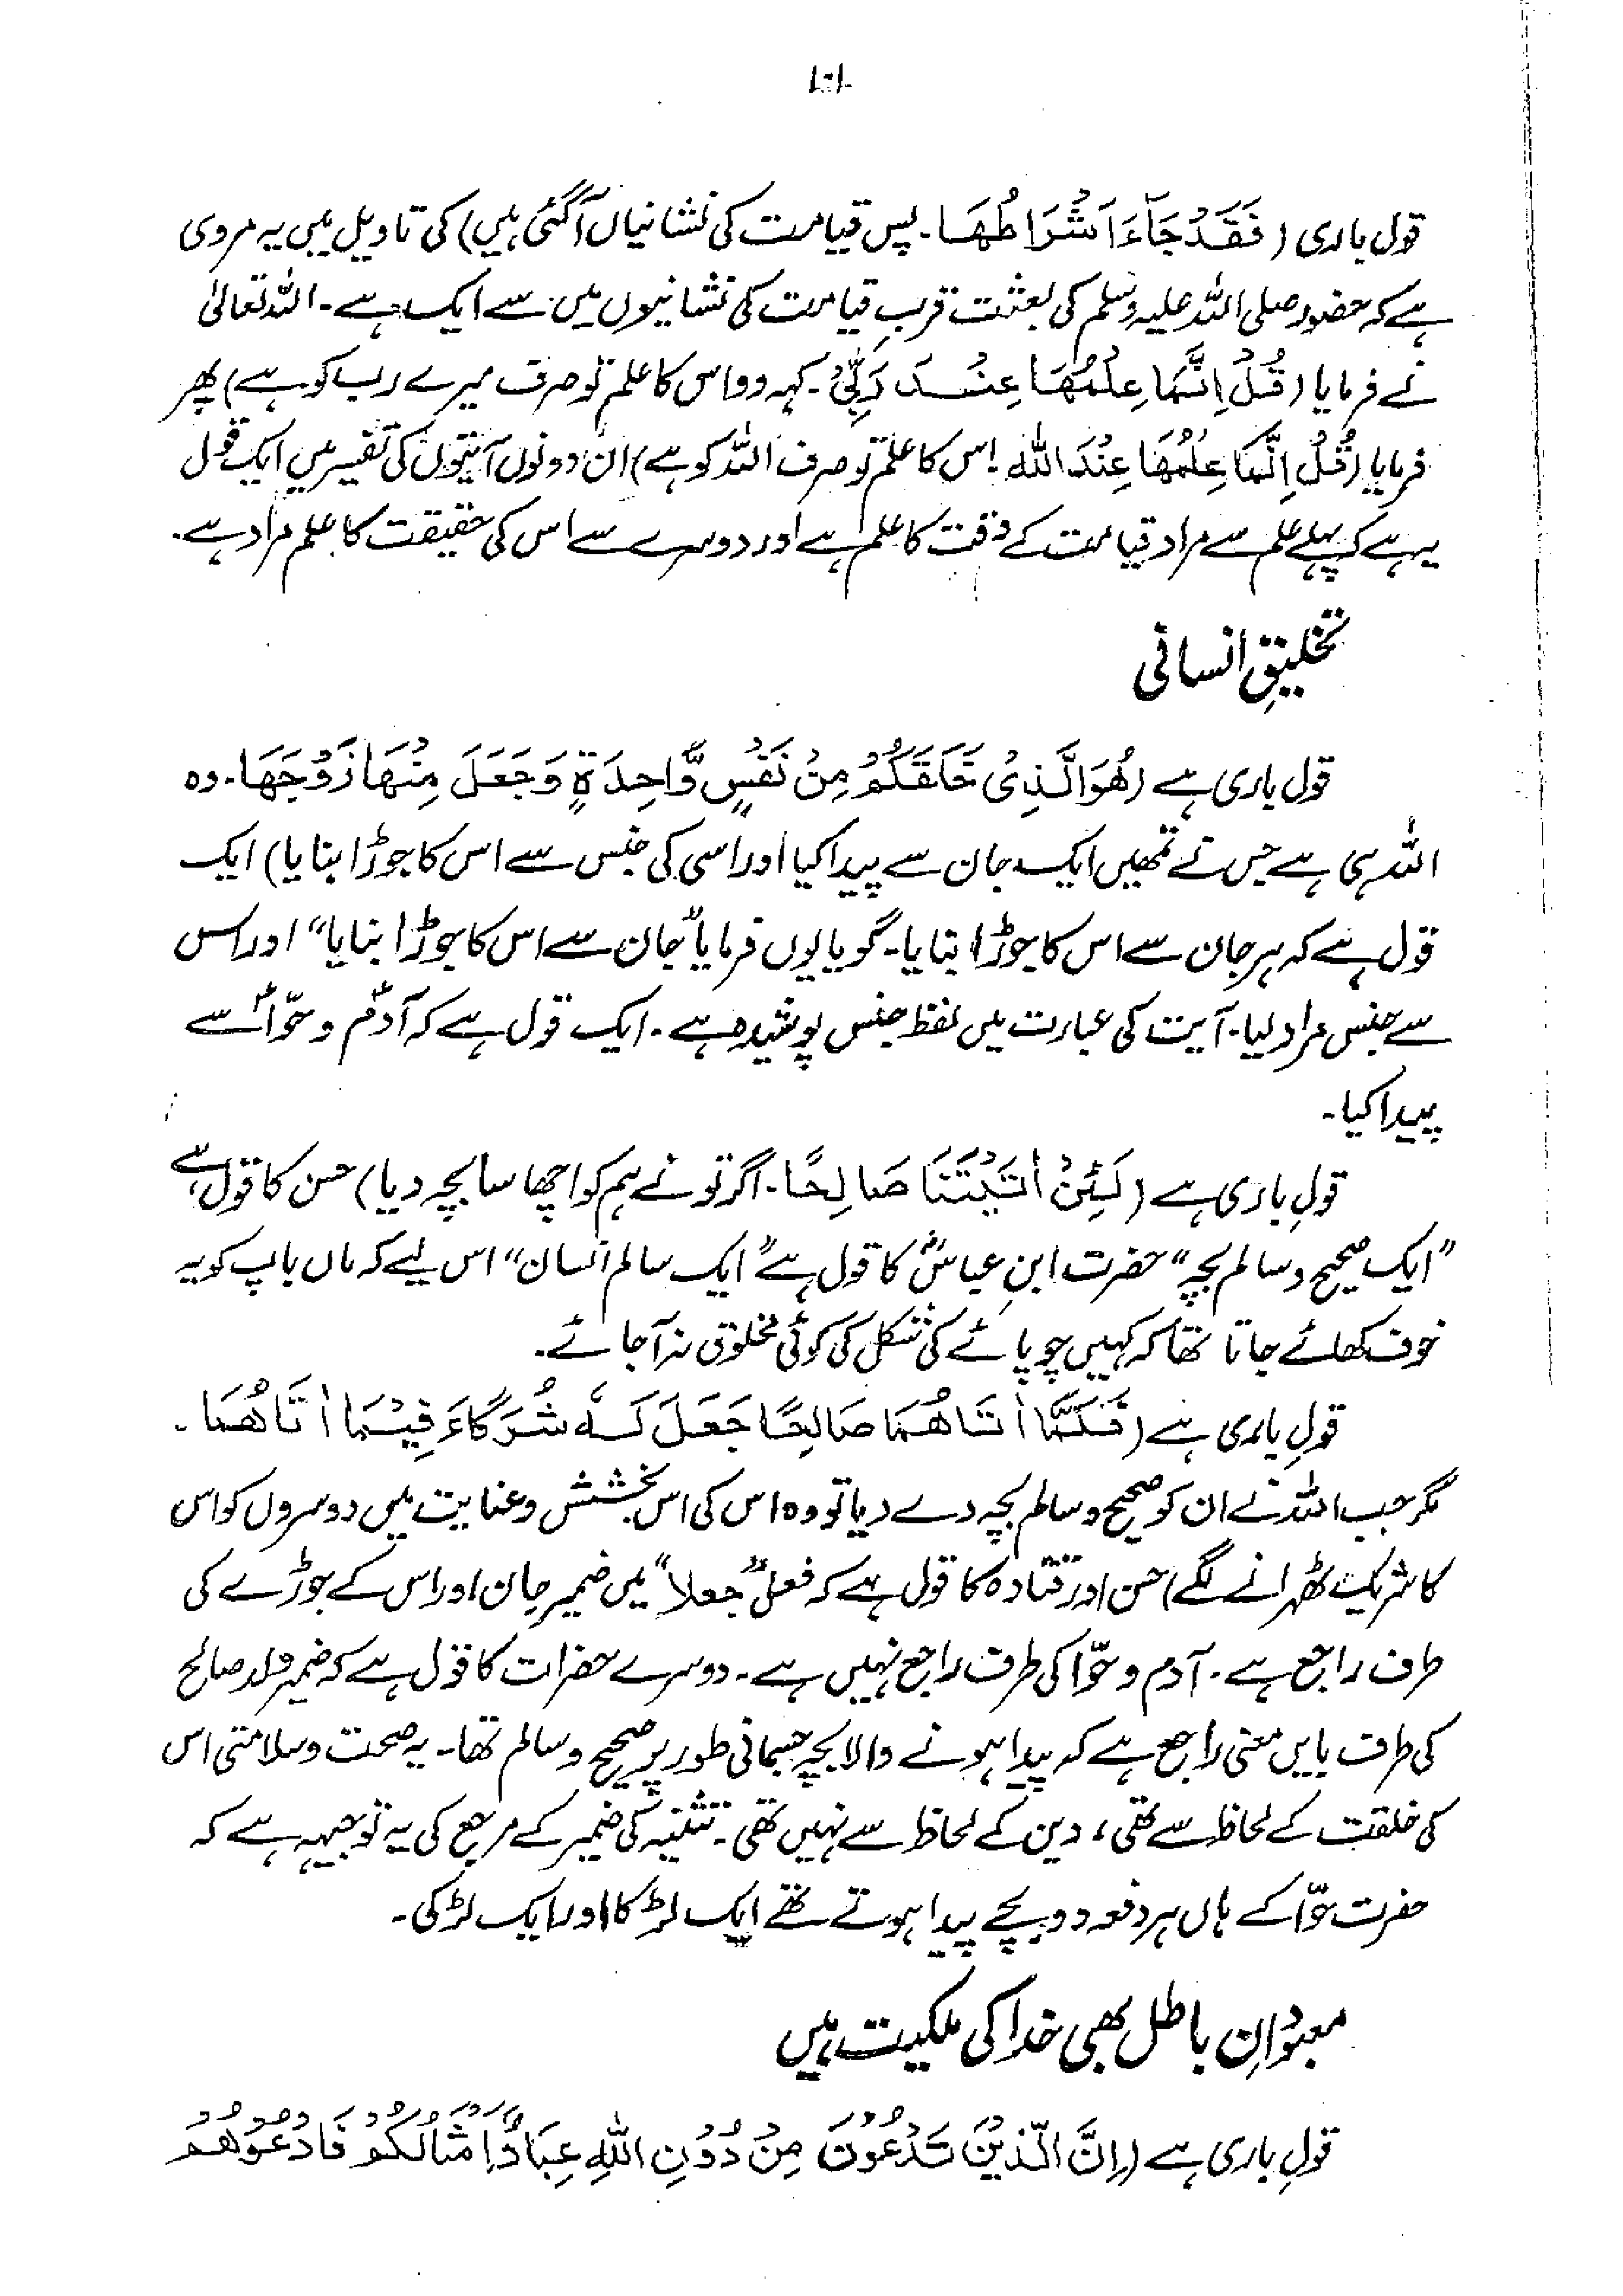 ۱۰۱
قول باری (فَقَدْ جَآءَ اَشْرَاطُهَا۔ پس قیامت کی نشانیاں آگئی ہیں) کی تاویل میں یہ مروی
ہے کہ حضور صلی اللہ علیہ وسلم کی بعثت قربِ قیامت کی نشانیوں میں سے ایک ہے۔ اللہ تعالیٰ
نے فرمایا (قُلْ اِنَّمَا عِلْمُهَا عِنْدَ رَبِّیْ۔ کہہ دو اس کا علم تو صرف میرے رب کو ہے) پھر
فرمایا (قُلْ اِنَّمَا عِلْمُهَا عِنْدَ اللهِ اس کا علم تو صرف اللہ کو ہے) ان دونوں آیتوں کی تفسیر میں ایک قول
یہ ہے کہ پہلے علم سے مراد قیامت کے وقت کا علم ہے اور دوسرے سے اس کی حقیقت کا علم مراد ہے۔
تخلیقِ انسانی
قول باری ہے (هُوَ الَّذِیْ خَلَقَكُمْ مِنْ نَفْسٍ وَّاحِدَةٍ وَجَعَلَ مِنْهَا زَوْجَهَا۔ وہ
اللہ ہی ہے جس نے تمھیں ایک جان سے پیدا کیا اور اسی کی جنس سے اس کا جوڑا بنایا) ایک
قول ہے کہ ہر جان سے اس کا جوڑا بنایا۔ گویا یوں فرمایا "جان سے اس کا جوڑا بنایا" اور اس
سے جنس مراد لیا۔ آیت کی عبارت میں لفظ جنس پوشیدہ ہے۔ ایک قول ہے کہ آدمؑ و حوّاؑ سے
پیدا کیا۔
قولِ باری ہے (لَئِنْ اٰتَیْتَنَا صَالِحًا۔ اگر تو نے ہم کو اچھا سا بچہ دیا) حسن کا قول ہے
"ایک صحیح و سالم بچہ" حضرت ابنِ عباسؓ کا قول ہے "ایک سالم انسان" اس لیے کہ ماں باپ کو یہ
خوف کھائے جاتا تھا کہ کہیں چوپائے کی شکل کی کوئی مخلوق نہ آ جائے۔
قولِ باری ہے (فَلَمَّا اٰتَاهُمَا صَالِحًا جَعَلَ لَهٗ شُرَكَاءَ فِیْمَا اٰتَاهُمَا۔
مگر جب اللہ نے ان کو صحیح و سالم بچہ دے دیا تو وہ اس کی اس بخشش و عنایت میں دوسروں کو اس
کا شریک ٹھہرانے لگے) حسن اور قتادہ کا قول ہے کہ فعل "جعلا" میں ضمیر جان اور اس کے جوڑے کی
طرف راجع ہے۔ آدم و حوّا کی طرف راجع نہیں ہے۔ دوسرے حضرات کا قول ہے کہ ضمیر ولد صالح
کی طرف بایں معنی راجع ہے کہ پیدا ہونے والا بچہ جسمانی طور پر صحیح و سالم تھا۔ یہ صحت و سلامتی اس
کی خلقت کے لحاظ سے تھی، دین کے لحاظ سے نہیں تھی۔ تثنیہ کی ضمیر کے مرجع کی یہ توجیہہ ہے کہ
حضرت حوّا کے ہاں ہر دفعہ دو بچے پیدا ہوتے تھے ایک لڑکا اور ایک لڑکی۔
معبودانِ باطل بھی خدا کی ملکیت ہیں
قولِ باری ہے (اِنَّ الَّذِیْنَ تَدْعُوْنَ مِنْ دُوْنِ اللهِ عِبَادٌ اَمْثَالُكُمْ فَادْعُوْهُمْ